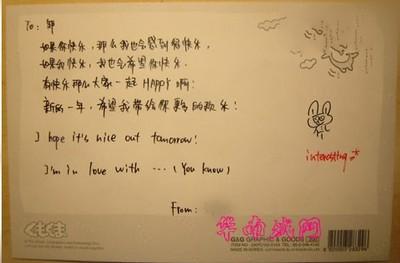 To: 邹
如果你快乐，那么我也会感到很快乐，
如果我快乐，我也会希望你快乐。
有快乐那么大家一起 HAPPY 啊！
新的一年，希望我带给你更多的欢乐！
I hope it's nice out tomorrow!
I'm in love with ... (You know)
interesting
From:
华南城网
くまくま
G&G GRAPHIC & GOODS
MADE IN KOREA